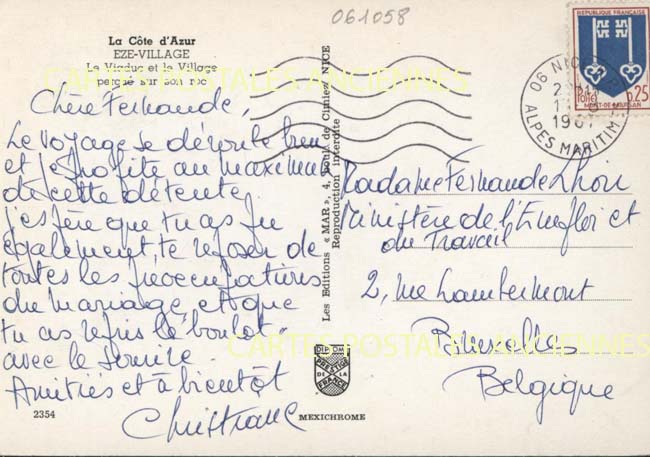 061058
La Côte d'Azur
EZE-VILLAGE
Le Viaduc et le Village
perché sur son roc
CARTES POSTALES ANCIENNES
Chère Fernande,
Le voyage se déroule bien
et je profite au maximum
de cette détente.
J'espère que tu as pu
également, te reposer de
toutes les préoccupations
du mariage, et que
tu as repris le boulot
avec le sourire.
Amitiés et à bientôt
Christiane
2354
Les Editions « MAR », 4, Boul. de Cimiez, NICE
Reproduction interdite
EDITION
PRESTIGE
DE LA
FRANCE
MEXICHROME
REPUBLIQUE FRANÇAISE
0,25
POSTES
MONT-DE-MARSAN
06 NICE
ALPES MARITIM
Madame Fernande
Ministère de l'Emploi et
du Travail
2, rue Lambermont
Bruxelles
CARTES POSTALES ANCIENNES
Belgique